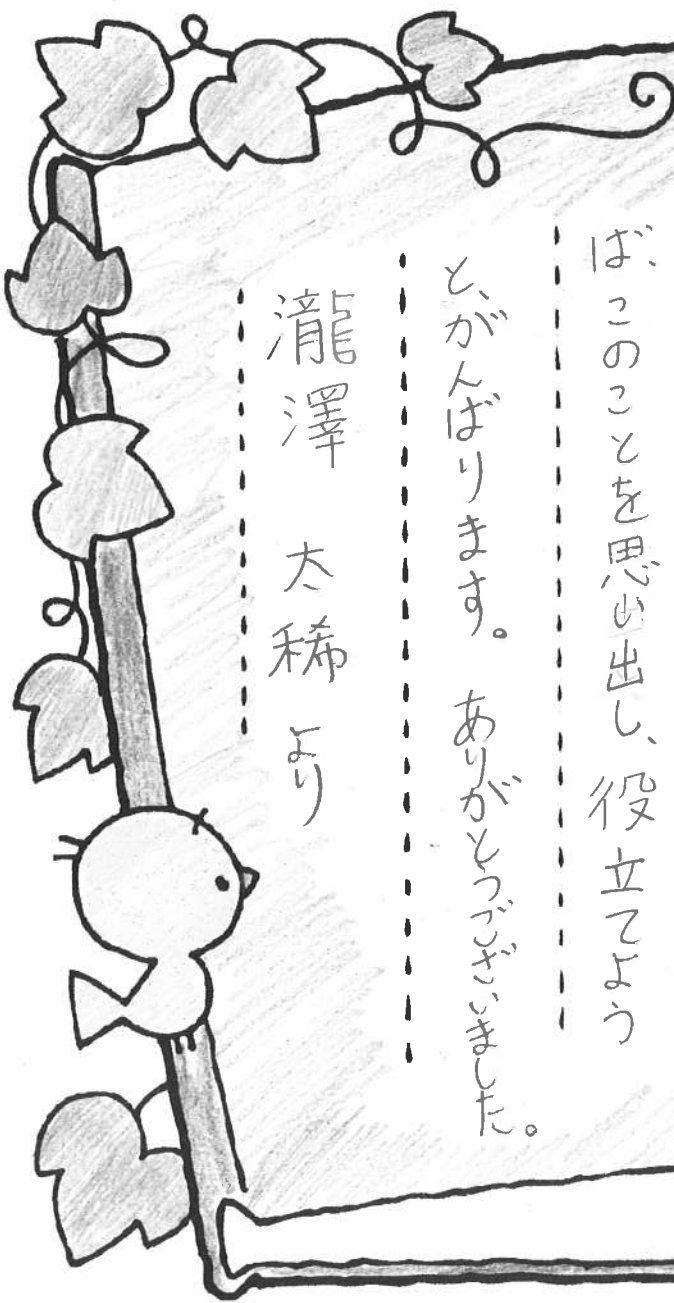 ば、このことを思い出し、役立てよう
と、がんばります。ありがとうございました。
瀧澤 太稀より